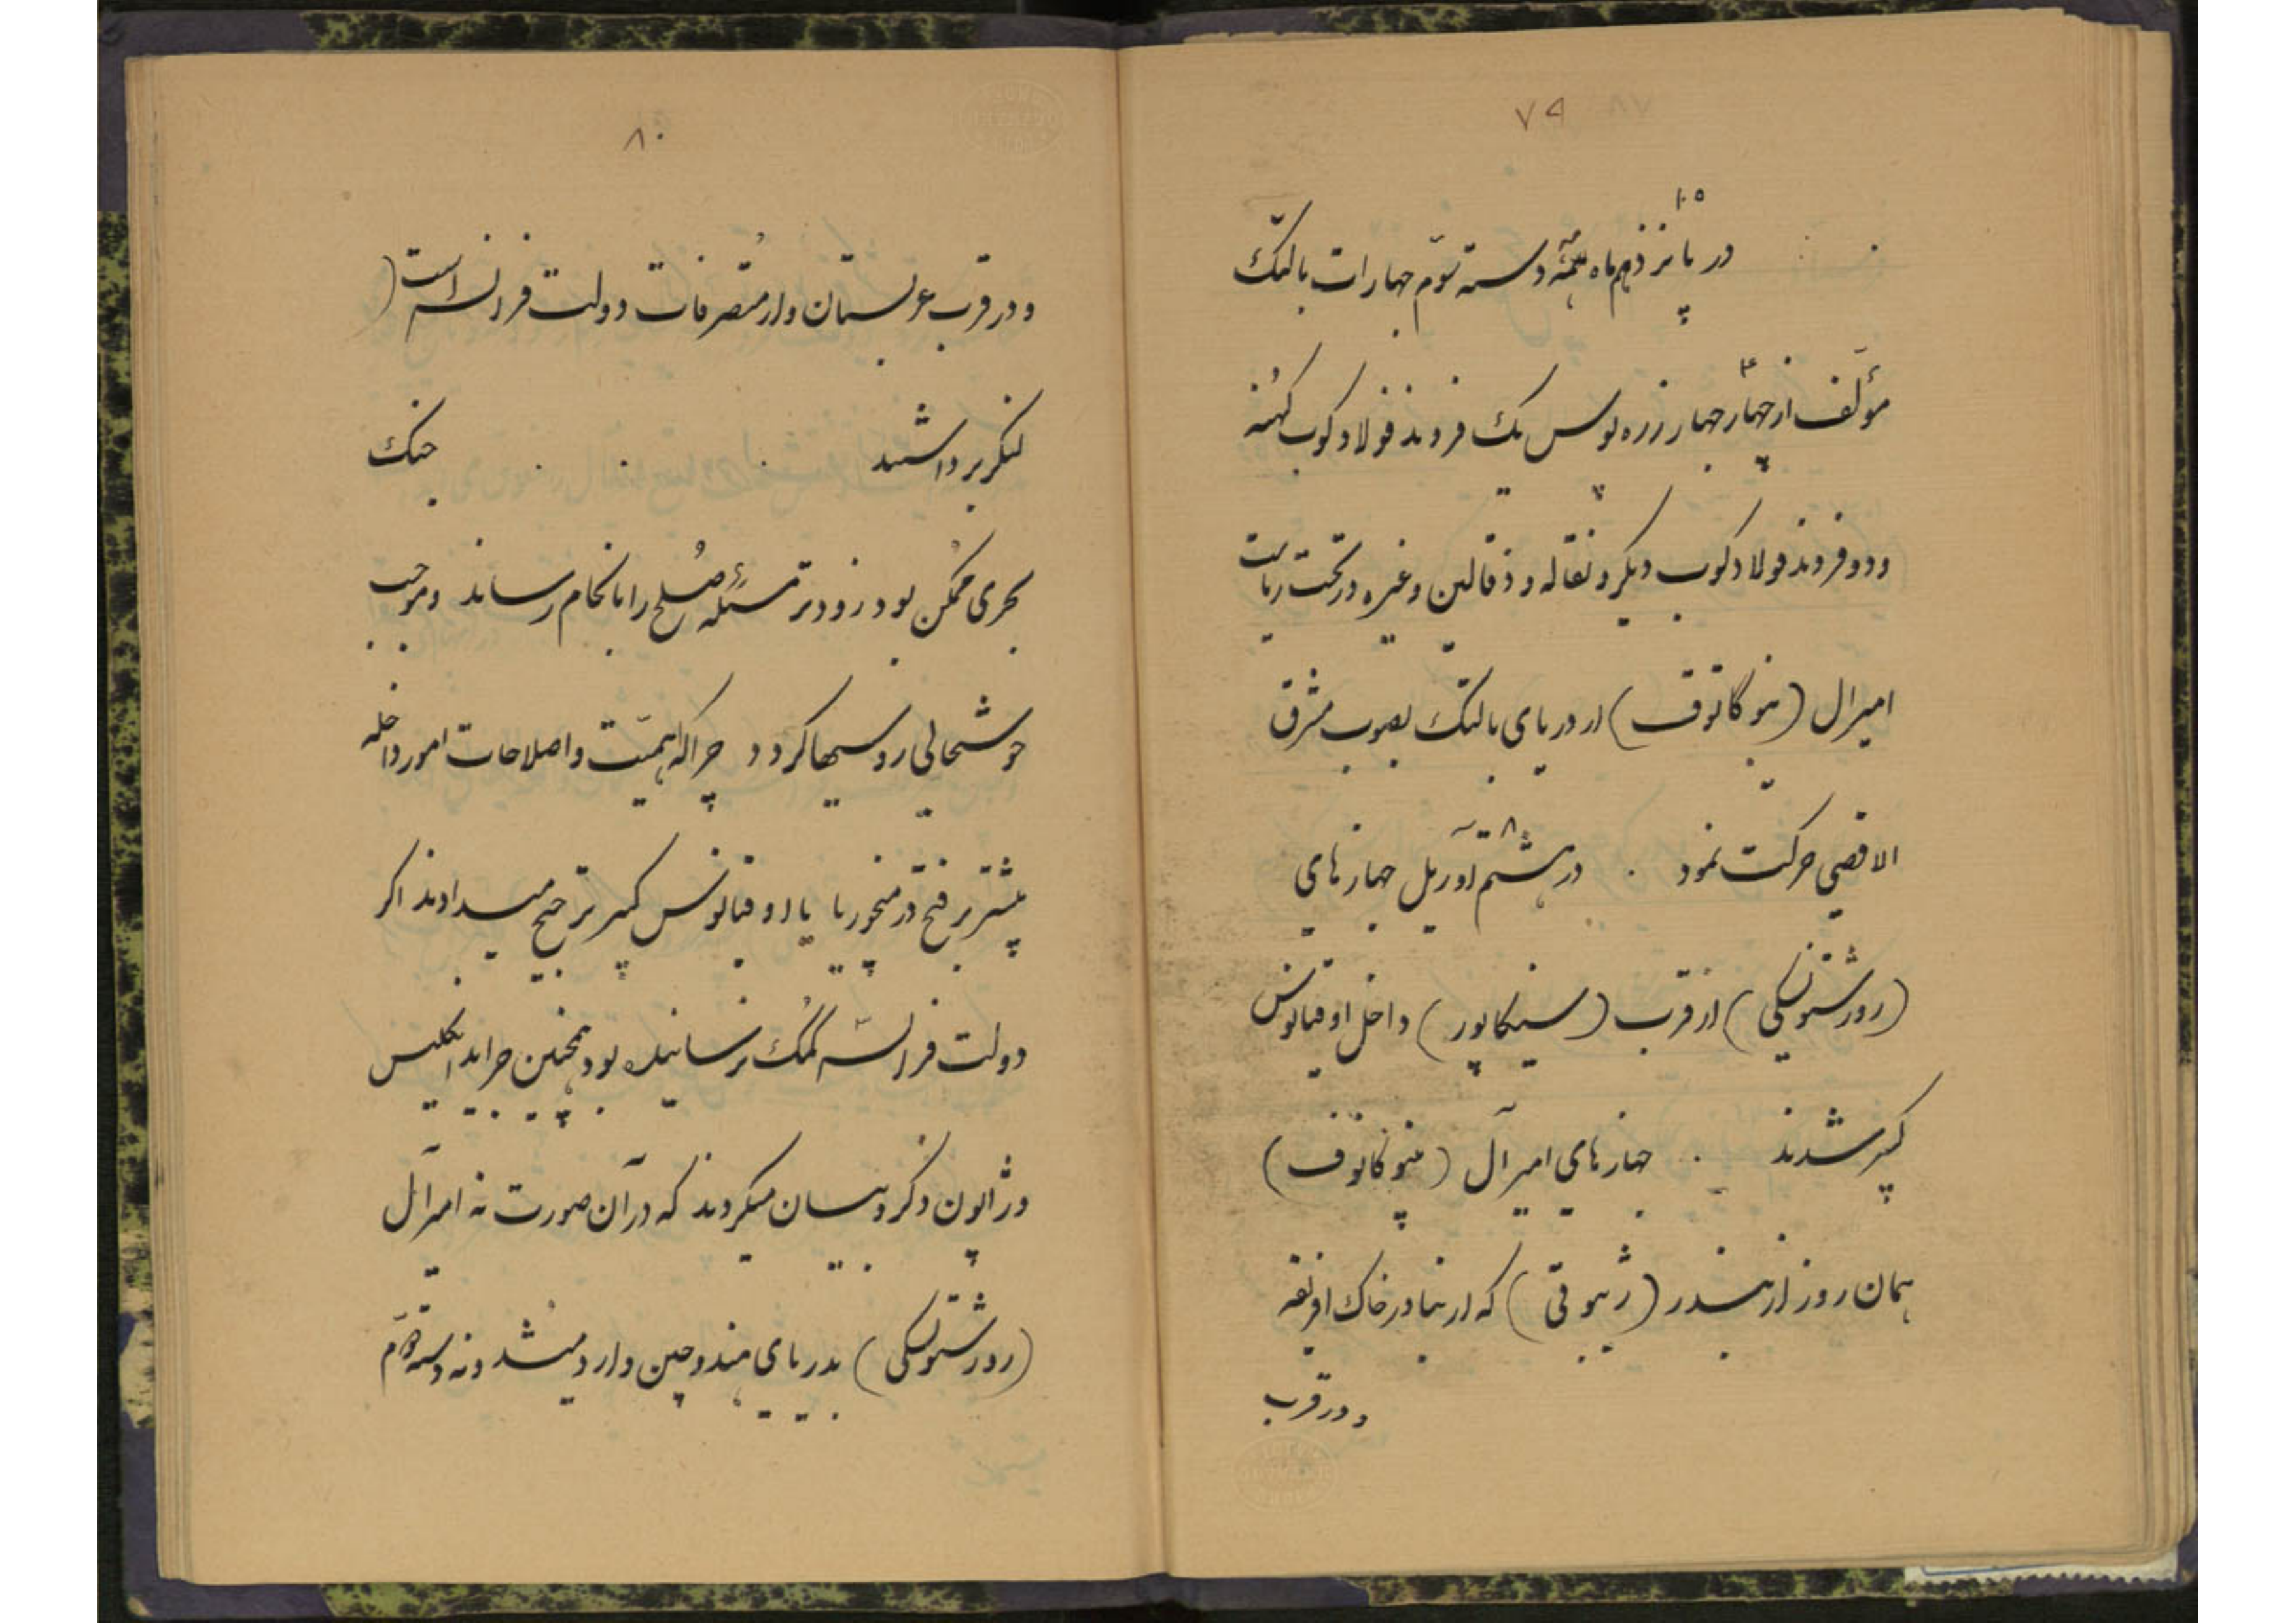 ۷۹
۱۵
در پانزدهم ماه دسته سوم جهازات بالتک
مؤلف از چهار جهاز زره پوس یک فروند فولاد کوب کهنه
۴
و دو فروند فولاد کوب دیگر و نقاله و ذقالین و غیره در تحت ریاست
امیرال (نبوگاتوف) از دریای بالتک بصوب مشرق
الاقصی حرکت نمود . در هشتم آوریل جهازهای
۸
(روژستونسکی) از قرب (سینگاپور) داخل اوقیانوس
کبیر شدند . جهازهای امیرآل (نبوگاتوف)
همان روز از بندر (ژیبوتی) که از بنادر خاک افریقه
و در قرب
۸۰
و در قرب عربستان و از متصرفات دولت فرانسه است)
لنگر برداشتند . . . جنگ
بحری ممکن بود زودتر مسئله صلح را بانجام رساند و موجب
خوشحالی روسیها گردد چرا که اهمیت و اصلاحات امور داخله
بیشتر بر فتح در منچوریا یا اوقیانوس کبیر ترجیح میدادند اگر
دولت فرانسه کمک نرسانیده بود همچنین جراید انگلیس
و ژاپون ذکر و بیان میکردند که در آن صورت نه امیرآل
(روژستونسکی) بدریای هند و چین وارد میشد و نه دسته دوم